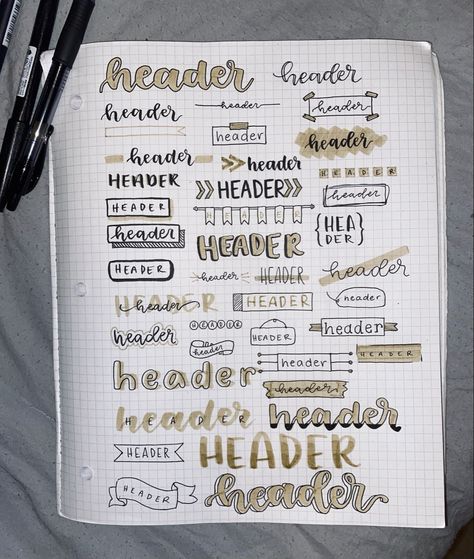 header header
header header header
header header
header header HEADER
HEADER HEADER HEADER
HEADER HEADER
header HEADER {HEA
DER}
HEADER header HEADER header
HEADER header HEADER header
header HEADER HEADER header
header header HEADER
header header
HEADER header header
HEADER HEADER
HEADER header